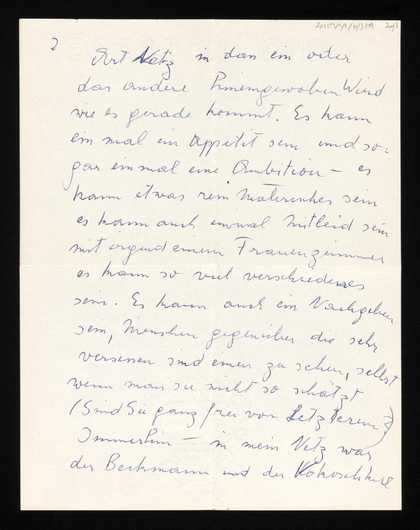 2
Art Netz in dan ein oder
das andere hineingewoben Wird
wie es gerade kommt. Es kann
ein mal ein Appetit sein und so-
gar einmal eine Ambition – es
kann etwas rein Materielles sein
es kann auch einmal Mitleid sein
mit irgend einem Frauenzimmer
es kann so viel verschiedenes
sein. Es kann auch ein Nachgeben
sein, Menschen gegenüber die sehr
versessen sind einen zu sehen, selbst
wenn man sie nicht so schätzt
(Sind Sie ganz frei von Letzterem?)
Immerhin – in mein Netz war
der Beckmann und der Kokoschka